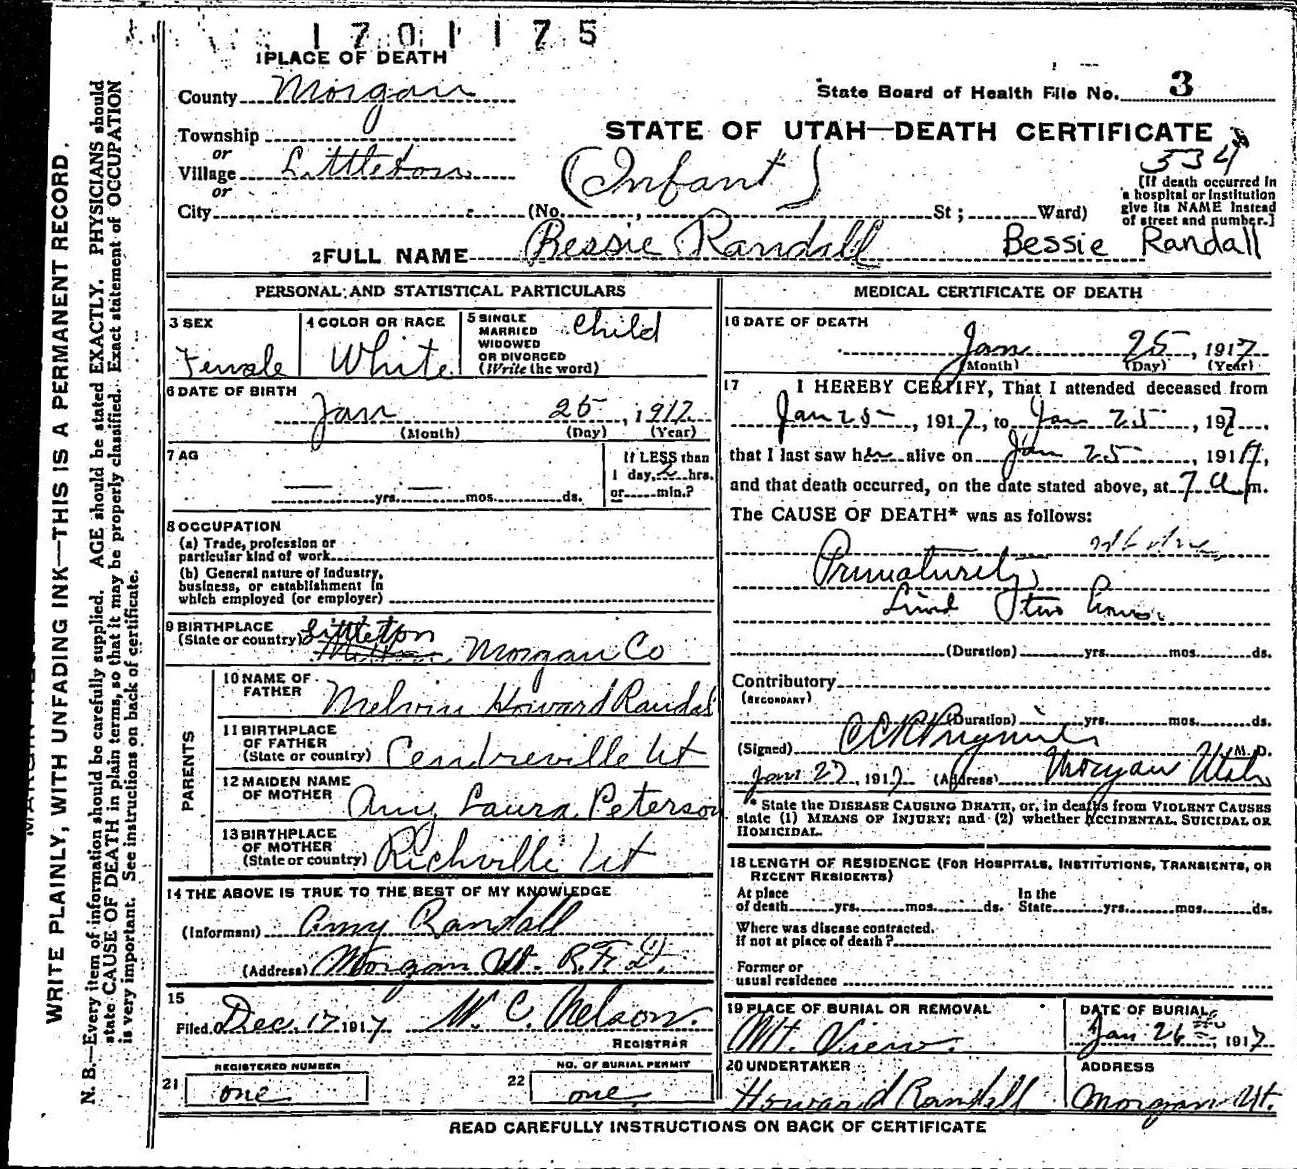 1701175
1 PLACE OF DEATH
County Morgan
State Board of Health File No. 3
Township
or
Village Littleton
or
STATE OF UTAH—DEATH CERTIFICATE
534
(Infant)
[If death occurred in
a hospital or institution
give its NAME instead
of street and number.]
City (No. , St ; Ward)
2 FULL NAME Bessie Randall Bessie Randall
PERSONAL AND STATISTICAL PARTICULARS
3 SEX
Female
4 COLOR OR RACE
White
5 SINGLE
MARRIED
WIDOWED
OR DIVORCED
(Write the word)
Child
6 DATE OF BIRTH
Jan 25, 1917
(Month) (Day) (Year)
7 AG
yrs. mos. ds.
If LESS than
1 day, 2 hrs.
or min.?
8 OCCUPATION
(a) Trade, profession or
particular kind of work
(b) General nature of industry,
business, or establishment in
which employed (or employer)
9 BIRTHPLACE
(State or country) Littleton
Morgan Co
PARENTS
10 NAME OF
FATHER
Melvin Howard Randal
11 BIRTHPLACE
OF FATHER
(State or country) Cendreville Ut
12 MAIDEN NAME
OF MOTHER
Amy Laura Peterson
13 BIRTHPLACE
OF MOTHER
(State or country) Richville Ut
14 THE ABOVE IS TRUE TO THE BEST OF MY KNOWLEDGE
(Informant) Amy Randall
(Address) Morgan Ut. R.F.D.
15
Filed Dec. 17 1917 W. C. Nelson.
REGISTRAR
REGISTERED NUMBER
21 one
NO. OF BURIAL PERMIT
22 one
MEDICAL CERTIFICATE OF DEATH
16 DATE OF DEATH
Jan 25, 1917
(Month) (Day) (Year)
17 I HEREBY CERTIFY, That I attended deceased from
Jan 25, 1917, to Jan 25, 197
that I last saw her alive on Jan 25, 1917,
and that death occurred, on the date stated above, at 7 a m.
The CAUSE OF DEATH* was as follows:
Prematurely
Lived two hours.
(Duration) yrs. mos. ds.
Contributory
(SECONDARY)
(Duration) yrs. mos. ds.
(Signed) M. D.
Jan 27 1917 (Address) Morgan Utah
* State the DISEASE CAUSING DEATH, or, in deaths from VIOLENT CAUSES
state (1) MEANS OF INJURY; and (2) whether ACCIDENTAL, SUICIDAL OR
HOMICIDAL.
18 LENGTH OF RESIDENCE (FOR HOSPITALS, INSTITUTIONS, TRANSIENTS, OR
RECENT RESIDENTS)
At place
of death yrs. mos. ds.
In the
State yrs. mos. ds.
Where was disease contracted.
If not at place of death?
Former or
usual residence
19 PLACE OF BURIAL OR REMOVAL
Mt. View.
DATE OF BURIAL
Jan 26, 1917
20 UNDERTAKER
Howard Randall
ADDRESS
Morgan Ut.
READ CAREFULLY INSTRUCTIONS ON BACK OF CERTIFICATE
WRITE PLAINLY, WITH UNFADING INK—THIS IS A PERMANENT RECORD.
N. B.—Every item of information should be carefully supplied. AGE should be stated EXACTLY. PHYSICIANS should
state CAUSE OF DEATH in plain terms, so that it may be properly classified. Exact statement of OCCUPATION
is very important. See instructions on back of certificate.